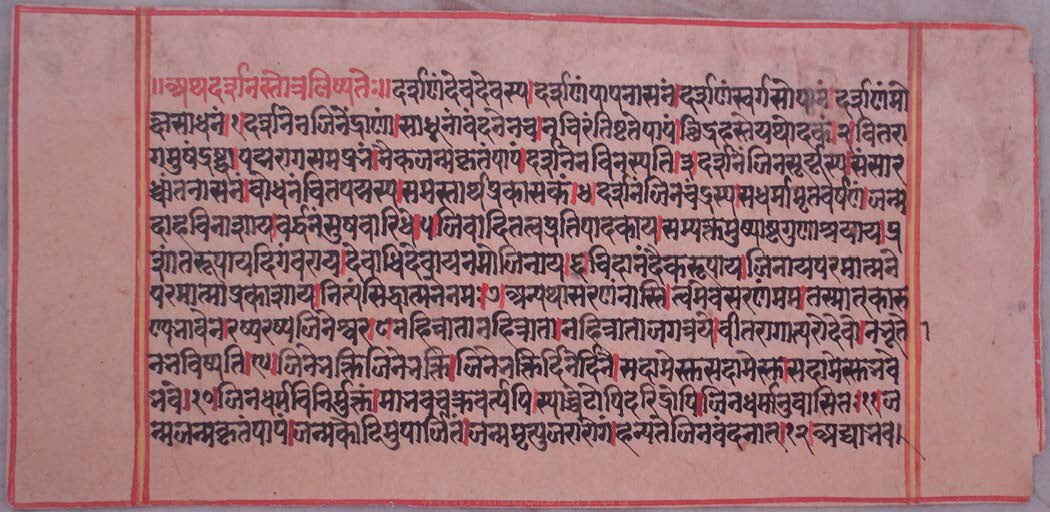 ॥अथदर्शनस्तोत्रलिष्यतेः॥दर्शणंदेवदेवस्प।दर्शणंपापनासनं।दर्शणंस्वर्गसोपानं।दर्शणंमो
क्षसाधनं।१।दर्शनेनजिनेंद्राणां।साधूनांवंदनेनच।नचिरंतिष्टतेपापं।छिद्रहस्तेयथोदकं।२।वितरा
गमुषंद्रष्ट्वा।पद्मरागसमप्रभं।नैकजन्मकृतंपापं।दर्शनेनविनस्पति।३।दर्शनंजिनसूर्यस्प।संसार
ध्वांतनासनं।बोधनंचितपद्मस्प।समस्तार्थप्रकासकं।४।दर्शनंजिनचंद्रस्प।सधर्मामृतवर्षणं।जन्म
दाहविनाशाय।वर्द्धनंसुषवारिधे।५।जिवादितत्वप्रतिपादकाय।सम्यक्तमुष्याष्टगुणाश्रयाय।प्र
शांतरूपायदिगंबराय।देवाधिदेवायनमोजिनाय।६।चिदानंदैकरूपाय।जिनायपरमात्मने
परमात्माप्रकाशाय।नित्यंसिद्धात्मनेनमः।७।अन्यथासरणंनास्ति।त्वमेवसरणंमम।तस्मातकारु
ण्यभावेन।रष्यरष्यजिनेश्वर।८।नहित्रातानहित्राता।नहित्राताजगत्रये।वीतरागात्परोदेवो।नभूतो
नभविष्यति।९।जिनेभक्तिजिनेभक्ति।जिनेभक्तिर्दिनेर्दिने।सदामेस्तुसदामेस्तु।सदामेस्तुभवे
भवे।१०।जिनधर्मविनिर्मुक्तं।मानवचक्रवर्त्यपि।स्पाच्चेटोपिदरिद्रोपि।जिनधर्मानुवासित।११।ज
न्मजन्मकृतंपापं।जन्मकोटिमुपार्जितं।जन्ममृत्युजरारोगं।हन्यतेजिनवंदनात।१२।अद्याभव।